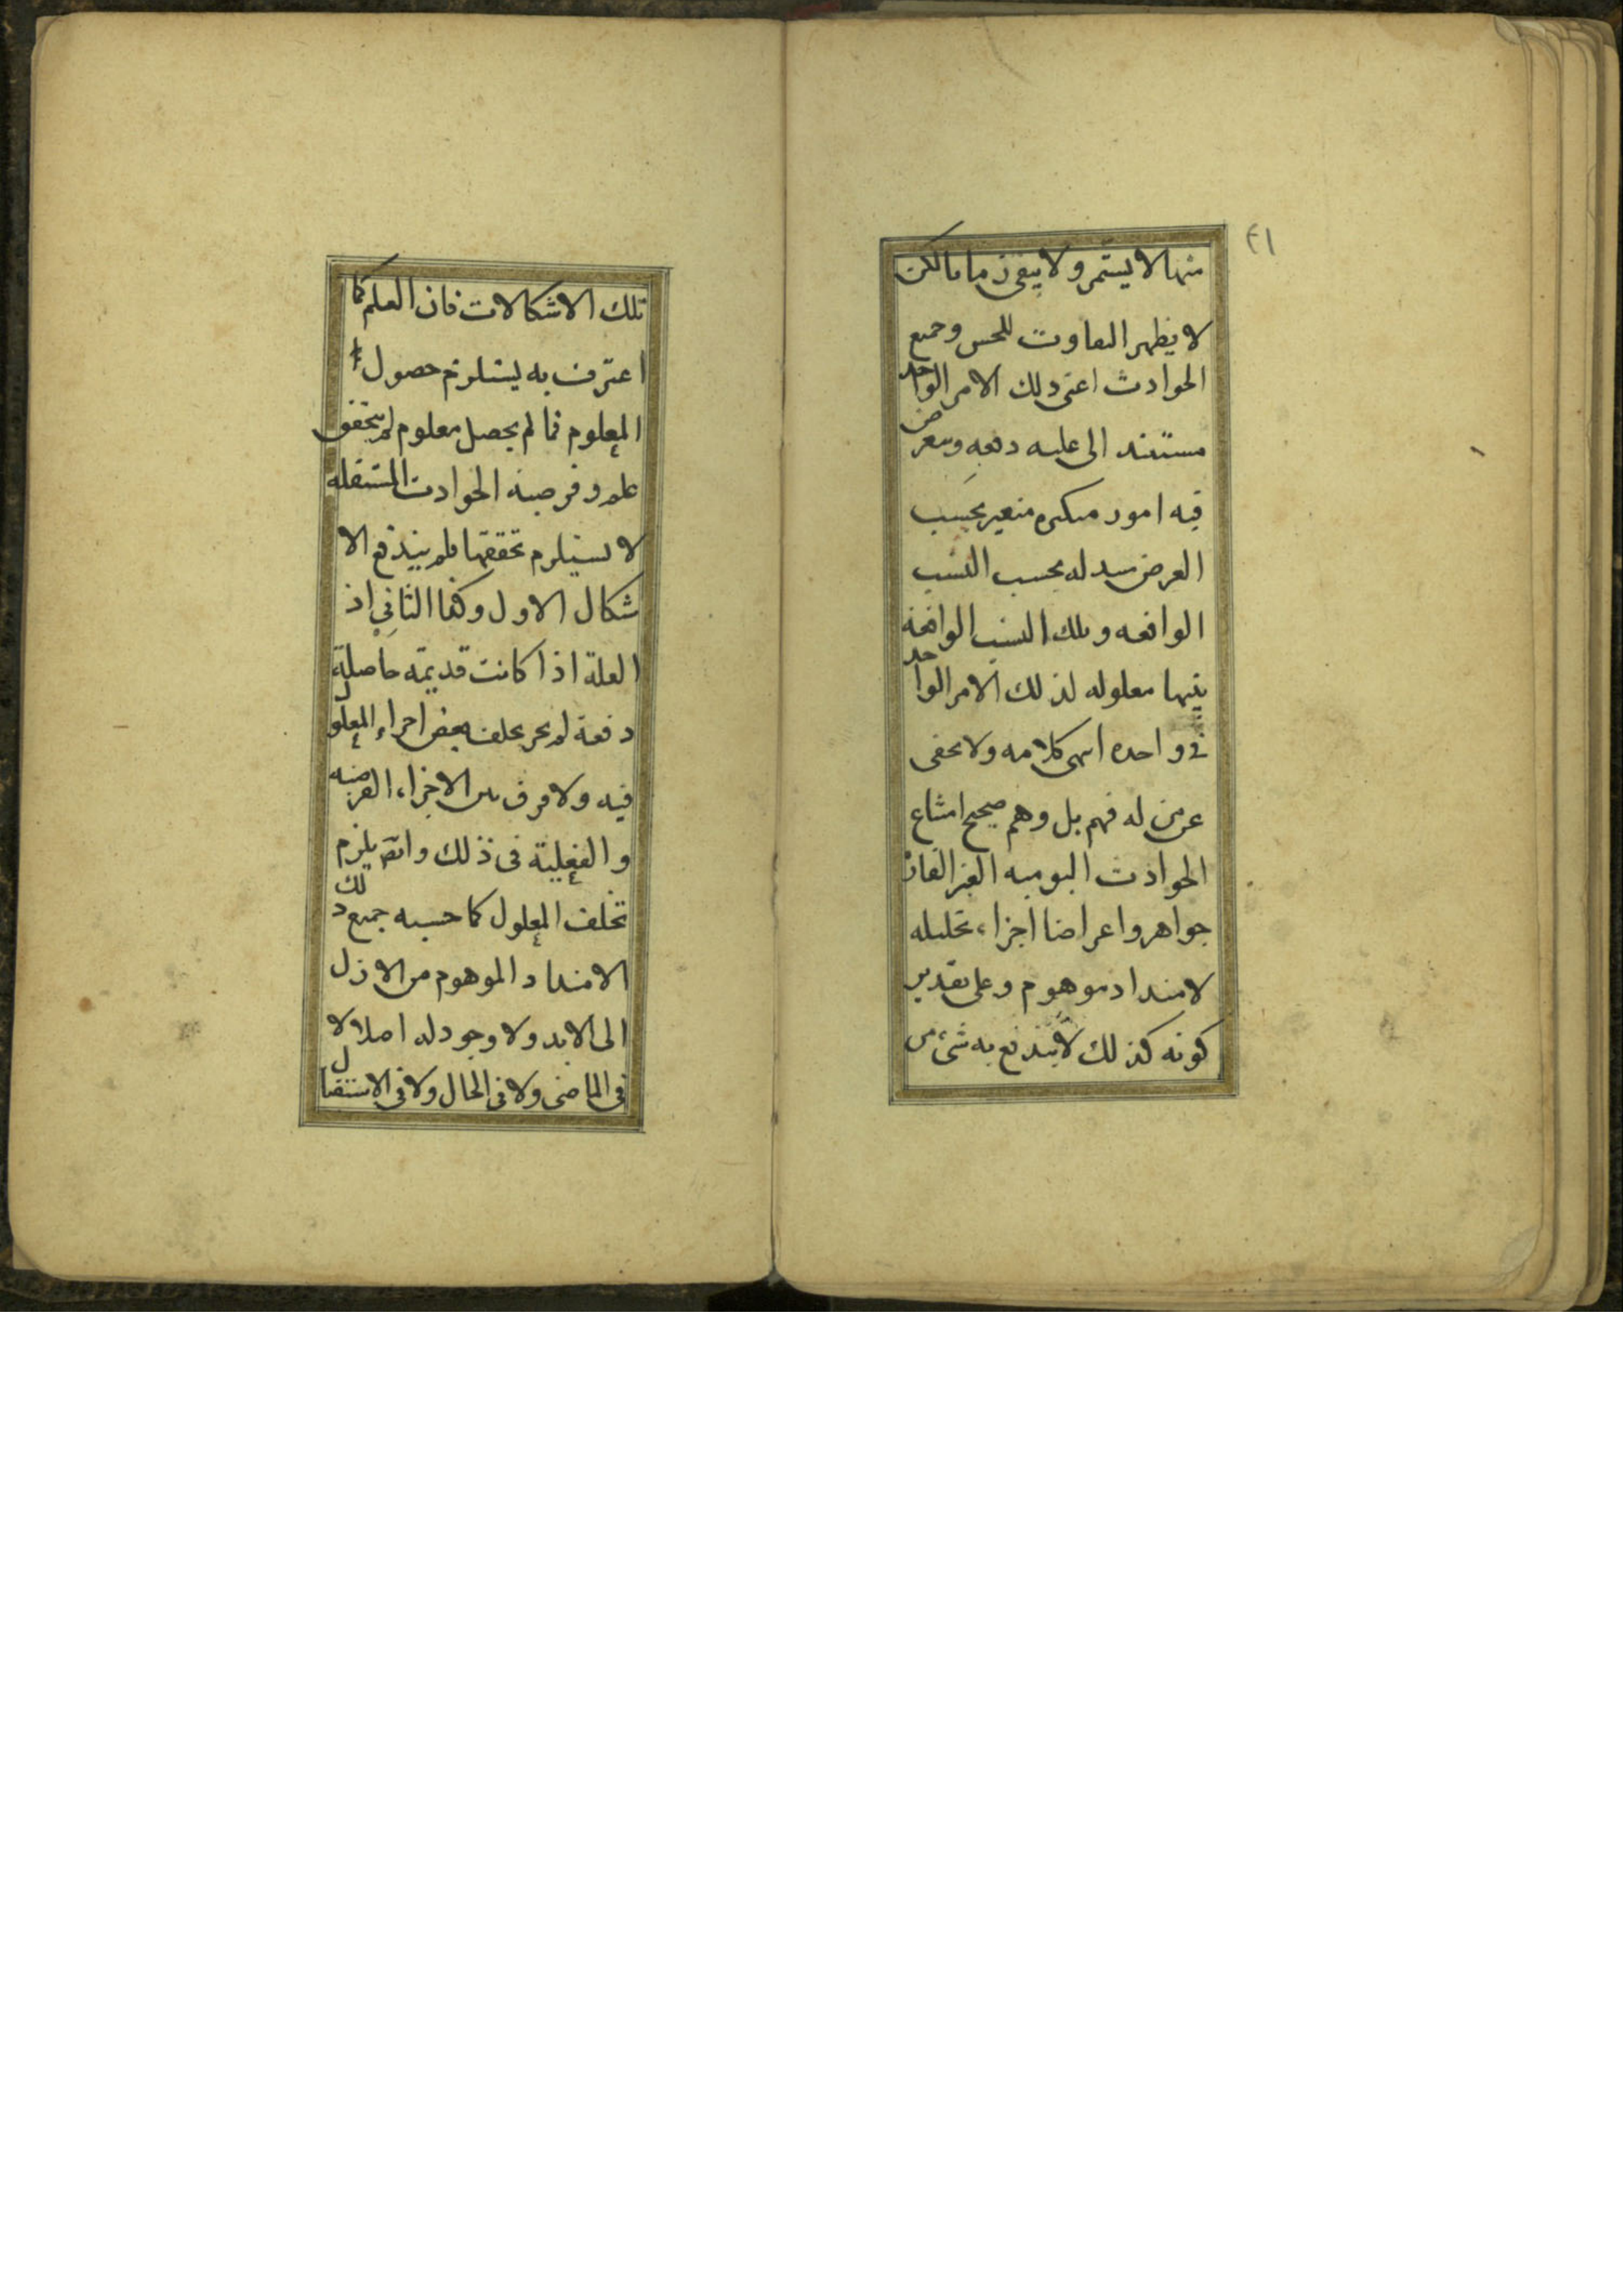 ٤١
منها لا يستمر ولا يبقى زمانا لكن
لا يظهر التفاوت للحس وجميع
الحوادث اعنى ذلك الامر الواحد
مستند الى علية دفعه ويعرض
فيه امور متكثره متغير بحسب
العرض متبدله بحسب النسب
الواقعه وتلك النسب الواقعة
بينها معلوله لذلك الامر الواحد
فى واحده انتهى كلامه ولا يخفى
عن من له فهم بل وهم صحيح امتناع
الحوادث اليوميه الغير القار
جواهر واعراضا اجزاء تحليليه
لامتداد موهوم وعلى تقدير
كونه كذلك لا يندفع به شىء من
تلك الاشكالات فان العلم كما
اعترف به يستلزم حصول
المعلوم فما لم يحصل معلوم لم يتحقق
علم وفرضية الحوادث المستقله
لا يستلزم تحققها فلم يندفع الا
شكال الاول وكذا الثانى اذ
العلة اذا كانت قديمة حاصلة
دفعة لم يجز تخلف بعض اجزاء المعلول
فيه ولا فرق بين الاجزاء الفرضيه
والفعلية فى ذلك وايضا يلزم
تخلف المعلول كما حسبه جميع ذلك
الامتداد الموهوم من الازل
الى الابد ولا وجود له اصلا لا
فى الماضى ولا فى الحال ولا فى الاستقبال